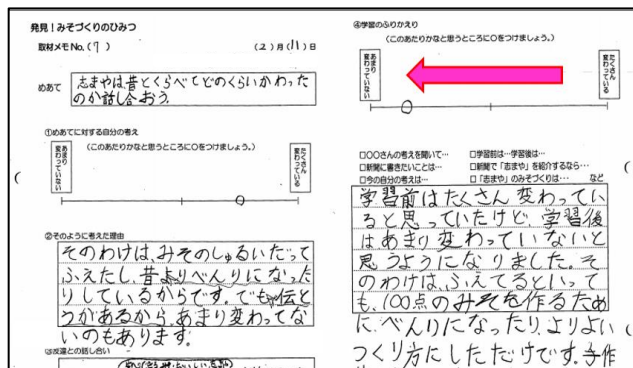 発見！みそづくりのひみつ
取材メモNo.(7)
(2)月(11)日
めあて
志まやは、昔とくらべてどのくらいかわった
のか話し合おう。
①めあてに対する自分の考え
(このあたりかなと思うところに○をつけましょう。)
あまり変わっていない
たくさん変わっている
②そのように考えた理由
そのわけは、みそのしゅるいだって
ふえたし、昔よりべんりになった
りしているからです。でも伝と
うがあるから、あまり変わってな
いのもあります。
③友達との話し合い
④学習のふりかえり
(このあたりかなと思うところに○をつけましょう。)
あまり変わっていない
たくさん変わっている
□○○さんの考えを聞いて… □学習前は…学習後は…
□新聞に書きたいことは… □新聞で「志まや」を紹介するなら…
□今の自分の考えは… □「志まや」のみそづくりは… など
学習前はたくさん変わってい
ると思っていたけど、学習後
はあまり変わっていないと
思うようになりました。そ
のわけは、ふえてるといって
も、100点のみそを作るため
に、べんりになったり、よりよい
つくり方にしただけです。手作